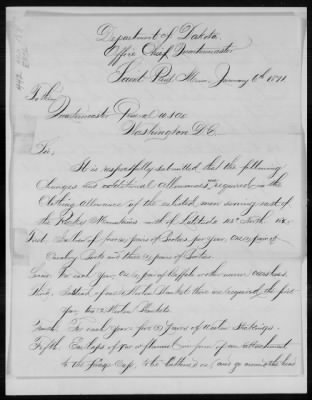 Department of Dakota,
Office Chief Quartermaster
Saint Paul Minn, January 6th 1871
To the
Quartermaster General U.S.A.
Washington D.C.
Sir,
It is respectfully submitted that the following
Changes and additional allowances are required in the
Clothing allowance of the enlisted men serving east of
the Rocky Mountains north of Latitude North
First. Instead of four pairs of Boots per year, One pair of
Cavalry Boots and three pairs of Bootees.
For each year One pair of Buffalo overshoes.
Third, Instead of one Woolen Blanket there are required, the first
year, two Woolen Blankets.
Fourth. For each year five (5) pairs of Woolen Stockings.
Fifth. Ear laps of fur or flannel in form of an attachment
to the forage Cap, to be buttoned on, and go around the head